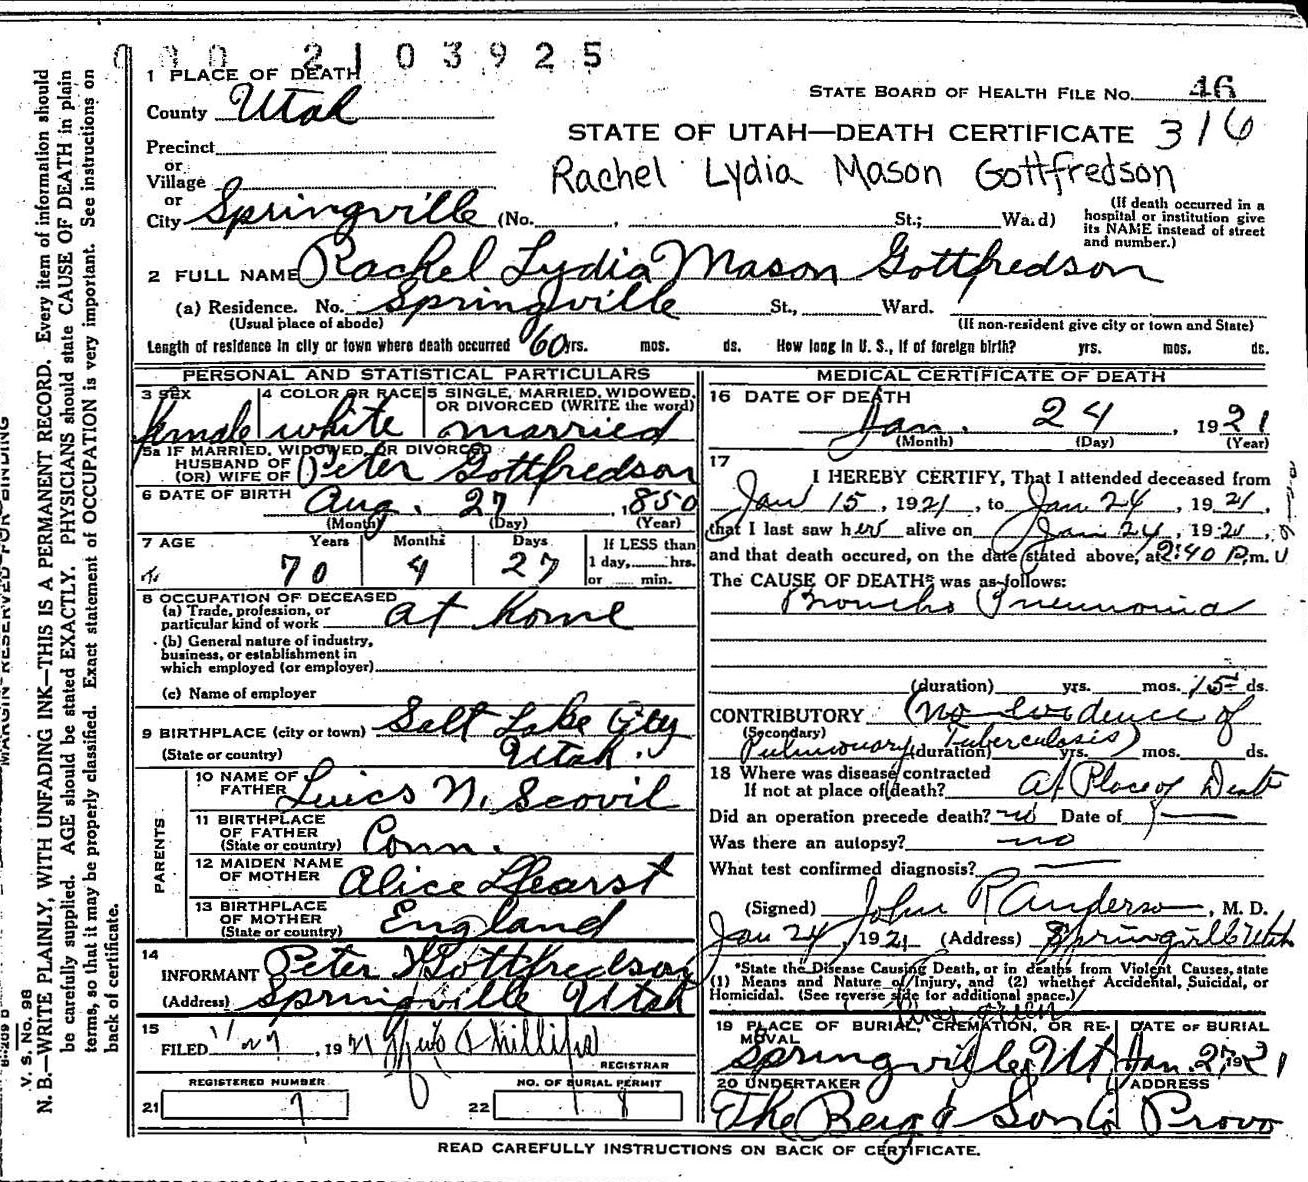 000 2103925
1 PLACE OF DEATH
County Utah
STATE BOARD OF HEALTH FILE NO. 46
STATE OF UTAH—DEATH CERTIFICATE 316
Precinct
or
Village
or
Rachel Lydia Mason Gottfredson
City Springville (No. , St.; Ward)
(If death occurred in a hospital or institution give its NAME instead of street and number.)
2 FULL NAME Rachel Lydia Mason Gottfredson
(a) Residence. No. Springville St., Ward.
(Usual place of abode) (If non-resident give city or town and State)
Length of residence in city or town where death occurred 60 yrs. mos. ds. How long in U. S., if of foreign birth? yrs. mos. ds.
PERSONAL AND STATISTICAL PARTICULARS
3 SEX female
4 COLOR OR RACE white
5 SINGLE, MARRIED, WIDOWED, OR DIVORCED (WRITE the word) married
5a IF MARRIED, WIDOWED, OR DIVORCED
HUSBAND OF
(OR) WIFE OF Peter Gottfredson
6 DATE OF BIRTH Aug. 27, 1850
(Month) (Day) (Year)
7 AGE Years Months Days If LESS than
70 4 27 1 day, hrs.
or min.
8 OCCUPATION OF DECEASED
(a) Trade, profession, or
particular kind of work at home
(b) General nature of industry,
business, or establishment in
which employed (or employer)
(c) Name of employer
9 BIRTHPLACE (city or town) Salt Lake City
(State or country) Utah.
PARENTS
10 NAME OF
FATHER Luics N. Scovil
11 BIRTHPLACE
OF FATHER
(State or country) Conn.
12 MAIDEN NAME
OF MOTHER Alice Hearst
13 BIRTHPLACE
OF MOTHER
(State or country) England
14
INFORMANT Peter Gottfredson
(Address) Springville Utah
15
FILED 1/27, 1921 Phillips
REGISTRAR
REGISTERED NUMBER NO. OF BURIAL PERMIT
21 7 22 8
MEDICAL CERTIFICATE OF DEATH
16 DATE OF DEATH
Jan. 24, 1921
(Month) (Day) (Year)
17
I HEREBY CERTIFY, That I attended deceased from
Jan 15, 1921, to Jan 24, 1921,
that I last saw her alive on Jan 24, 1921,
and that death occured, on the date stated above, at 2:40 P.m.
The CAUSE OF DEATH* was as follows:
Broncho Pneumonia
(duration) yrs. mos. 15 ds.
CONTRIBUTORY (No evidence of
(Secondary)
Pulmonary Tuberculosis)
(duration) yrs. mos. ds.
18 Where was disease contracted
If not at place of death? At Place of Death
Did an operation precede death? no Date of
Was there an autopsy? no
What test confirmed diagnosis?
(Signed) John R Anderson, M. D.
Jan 24, 1921 (Address) Springville Utah
*State the Disease Causing Death, or in deaths from Violent Causes, state
(1) Means and Nature of Injury, and (2) whether Accidental, Suicidal, or
Homicidal. (See reverse side for additional space.)
Evergreen
19 PLACE OF BURIAL, CREMATION, OR REMOVAL DATE OF BURIAL
Springville, Ut Jan. 27, 1921
20 UNDERTAKER ADDRESS
The Berg & Son Co Provo
READ CAREFULLY INSTRUCTIONS ON BACK OF CERTIFICATE.
MARGIN RESERVED FOR BINDING
V. S. No. 98
N. B.—WRITE PLAINLY, WITH UNFADING INK—THIS IS A PERMANENT RECORD. Every item of information should
be carefully supplied. AGE should be stated EXACTLY. PHYSICIANS should state CAUSE OF DEATH in plain
terms, so that it may be properly classified. Exact statement of OCCUPATION is very important. See instructions on
back of certificate.